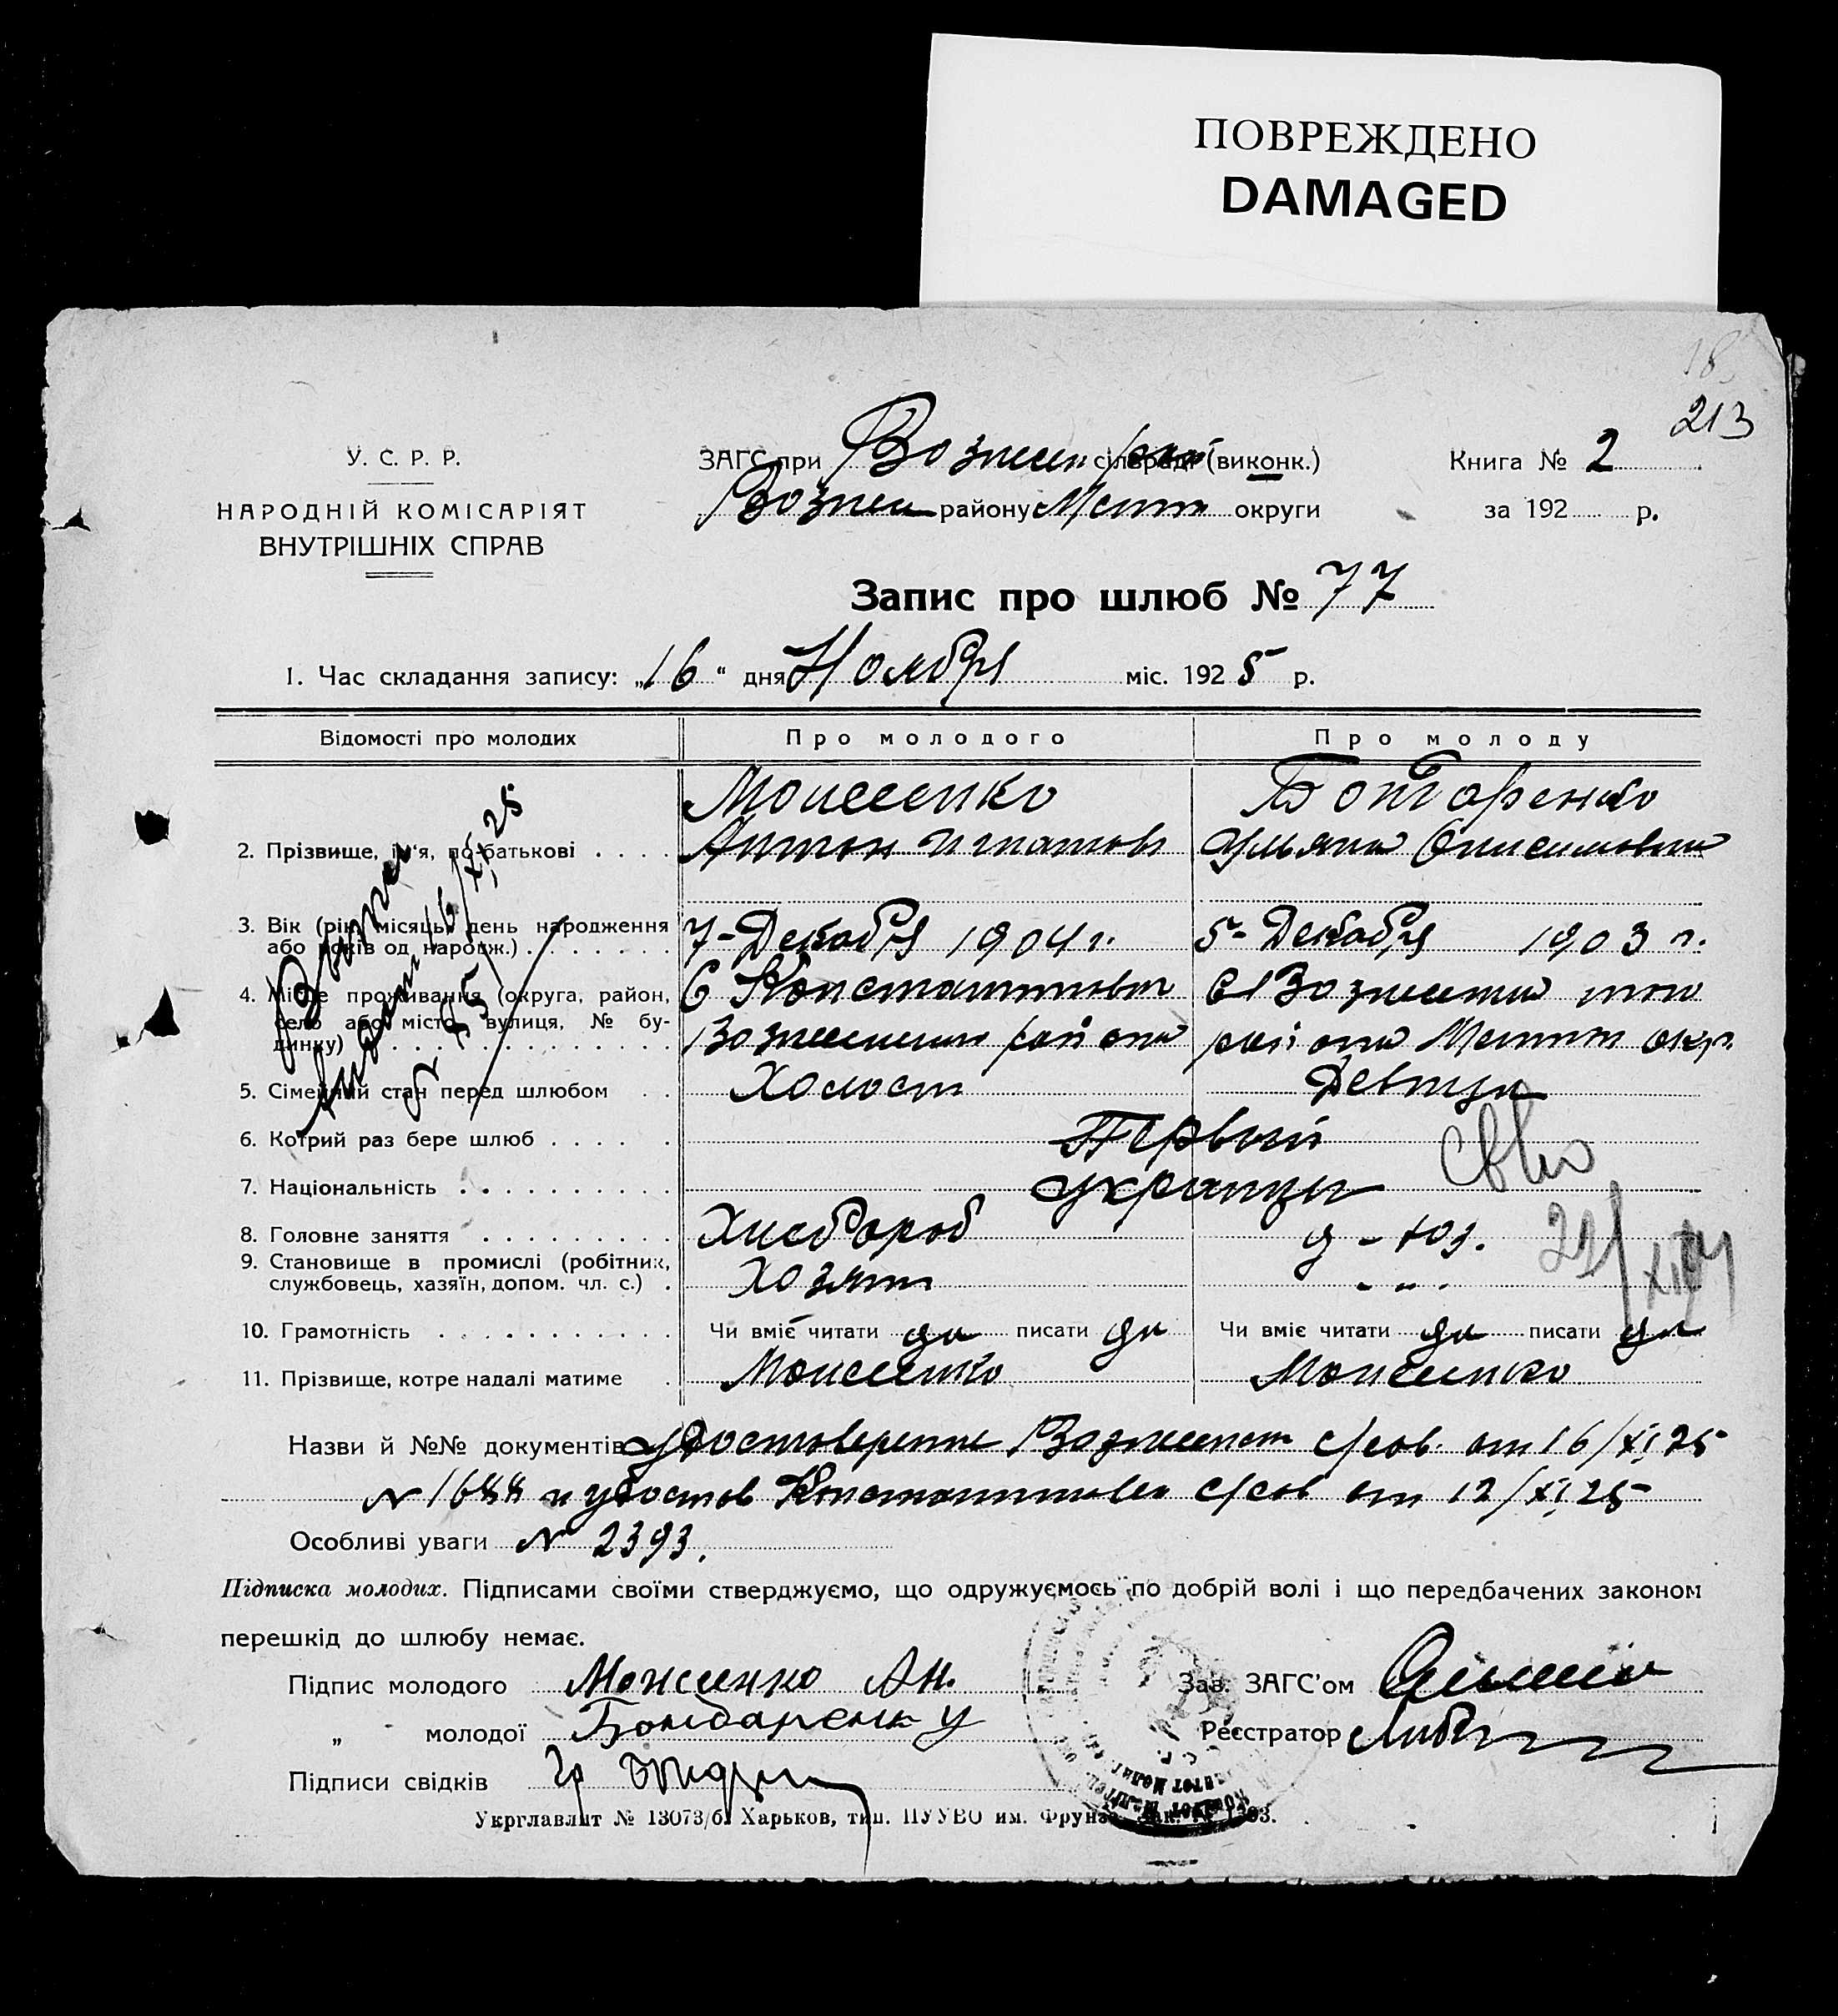 ПОВРЕЖДЕНО
DAMAGED
18
213
У. С. Р. Р.
НАРОДНІЙ КОМІСАРІЯТ
ВНУТРІШНІХ СПРАВ
ЗАГС при Вознесен сільраді (виконк.)
Вознесен району Мелит округи
Книга № 2
за 192 р.
Запис про шлюб № 77
1. Час складання запису: „16“ дня Ноября міс. 1925 р.
Відомості про молодих
Про молодого
Про молоду
2. Прізвище, ім'я, по-батькові . . . .
Моисеенко
Антон Игнатов
Бондаренко
Ульяна Онисимовна
3. Вік (рік, місяць, день народження
або років од народж.) . . . . . . .
7-Декабря 1904 г.
5-Декабря 1903 г.
4. Місце проживання (округа, район,
село або місто, вулиця, № бу-
динку) . . . . . . . . . . . . .
С Константиновки
Вознесенки района
С Вознесенки того
района Мелит окр.
5. Сімейний стан перед шлюбом . .
Холост
Девица
6. Котрий раз бере шлюб . . . . . .
Первый
7. Національність . . . . . . . . . .
украинцы
8. Головне заняття . . . . . . . . .
Хлебороб
д-хоз.
9. Становище в промислі (робітник,
службовець, хазяїн, допом. чл. с.) .
Хозяин
- „ -
10. Грамотність . . . . . . . . . . . .
Чи вміє читати да писати да
Чи вміє читати да писати да
11. Прізвище, котре надалі матиме .
Моисеенко
Моисеенко
16/XI 25
№ 45
Назви й №№ документів удостоверение Вознесенск с/сов. от 16/XI 25
№ 1688 и удостов Константиновск с/сов от 12/XI 25
Особливі уваги № 2393.
Підписка молодих. Підписами своїми стверджуємо, що одружуємось по добрій волі і що передбачених законом
перешкід до шлюбу немає.
Підпис молодого Моисеенко Ан.
„ молодої Бондаренк У
Підписи свідків
Зав. ЗАГС'ом
Реєстратор
Укрглавліт № 13073/б. Харьков, тип. ПУУВО им. Фрунзе.